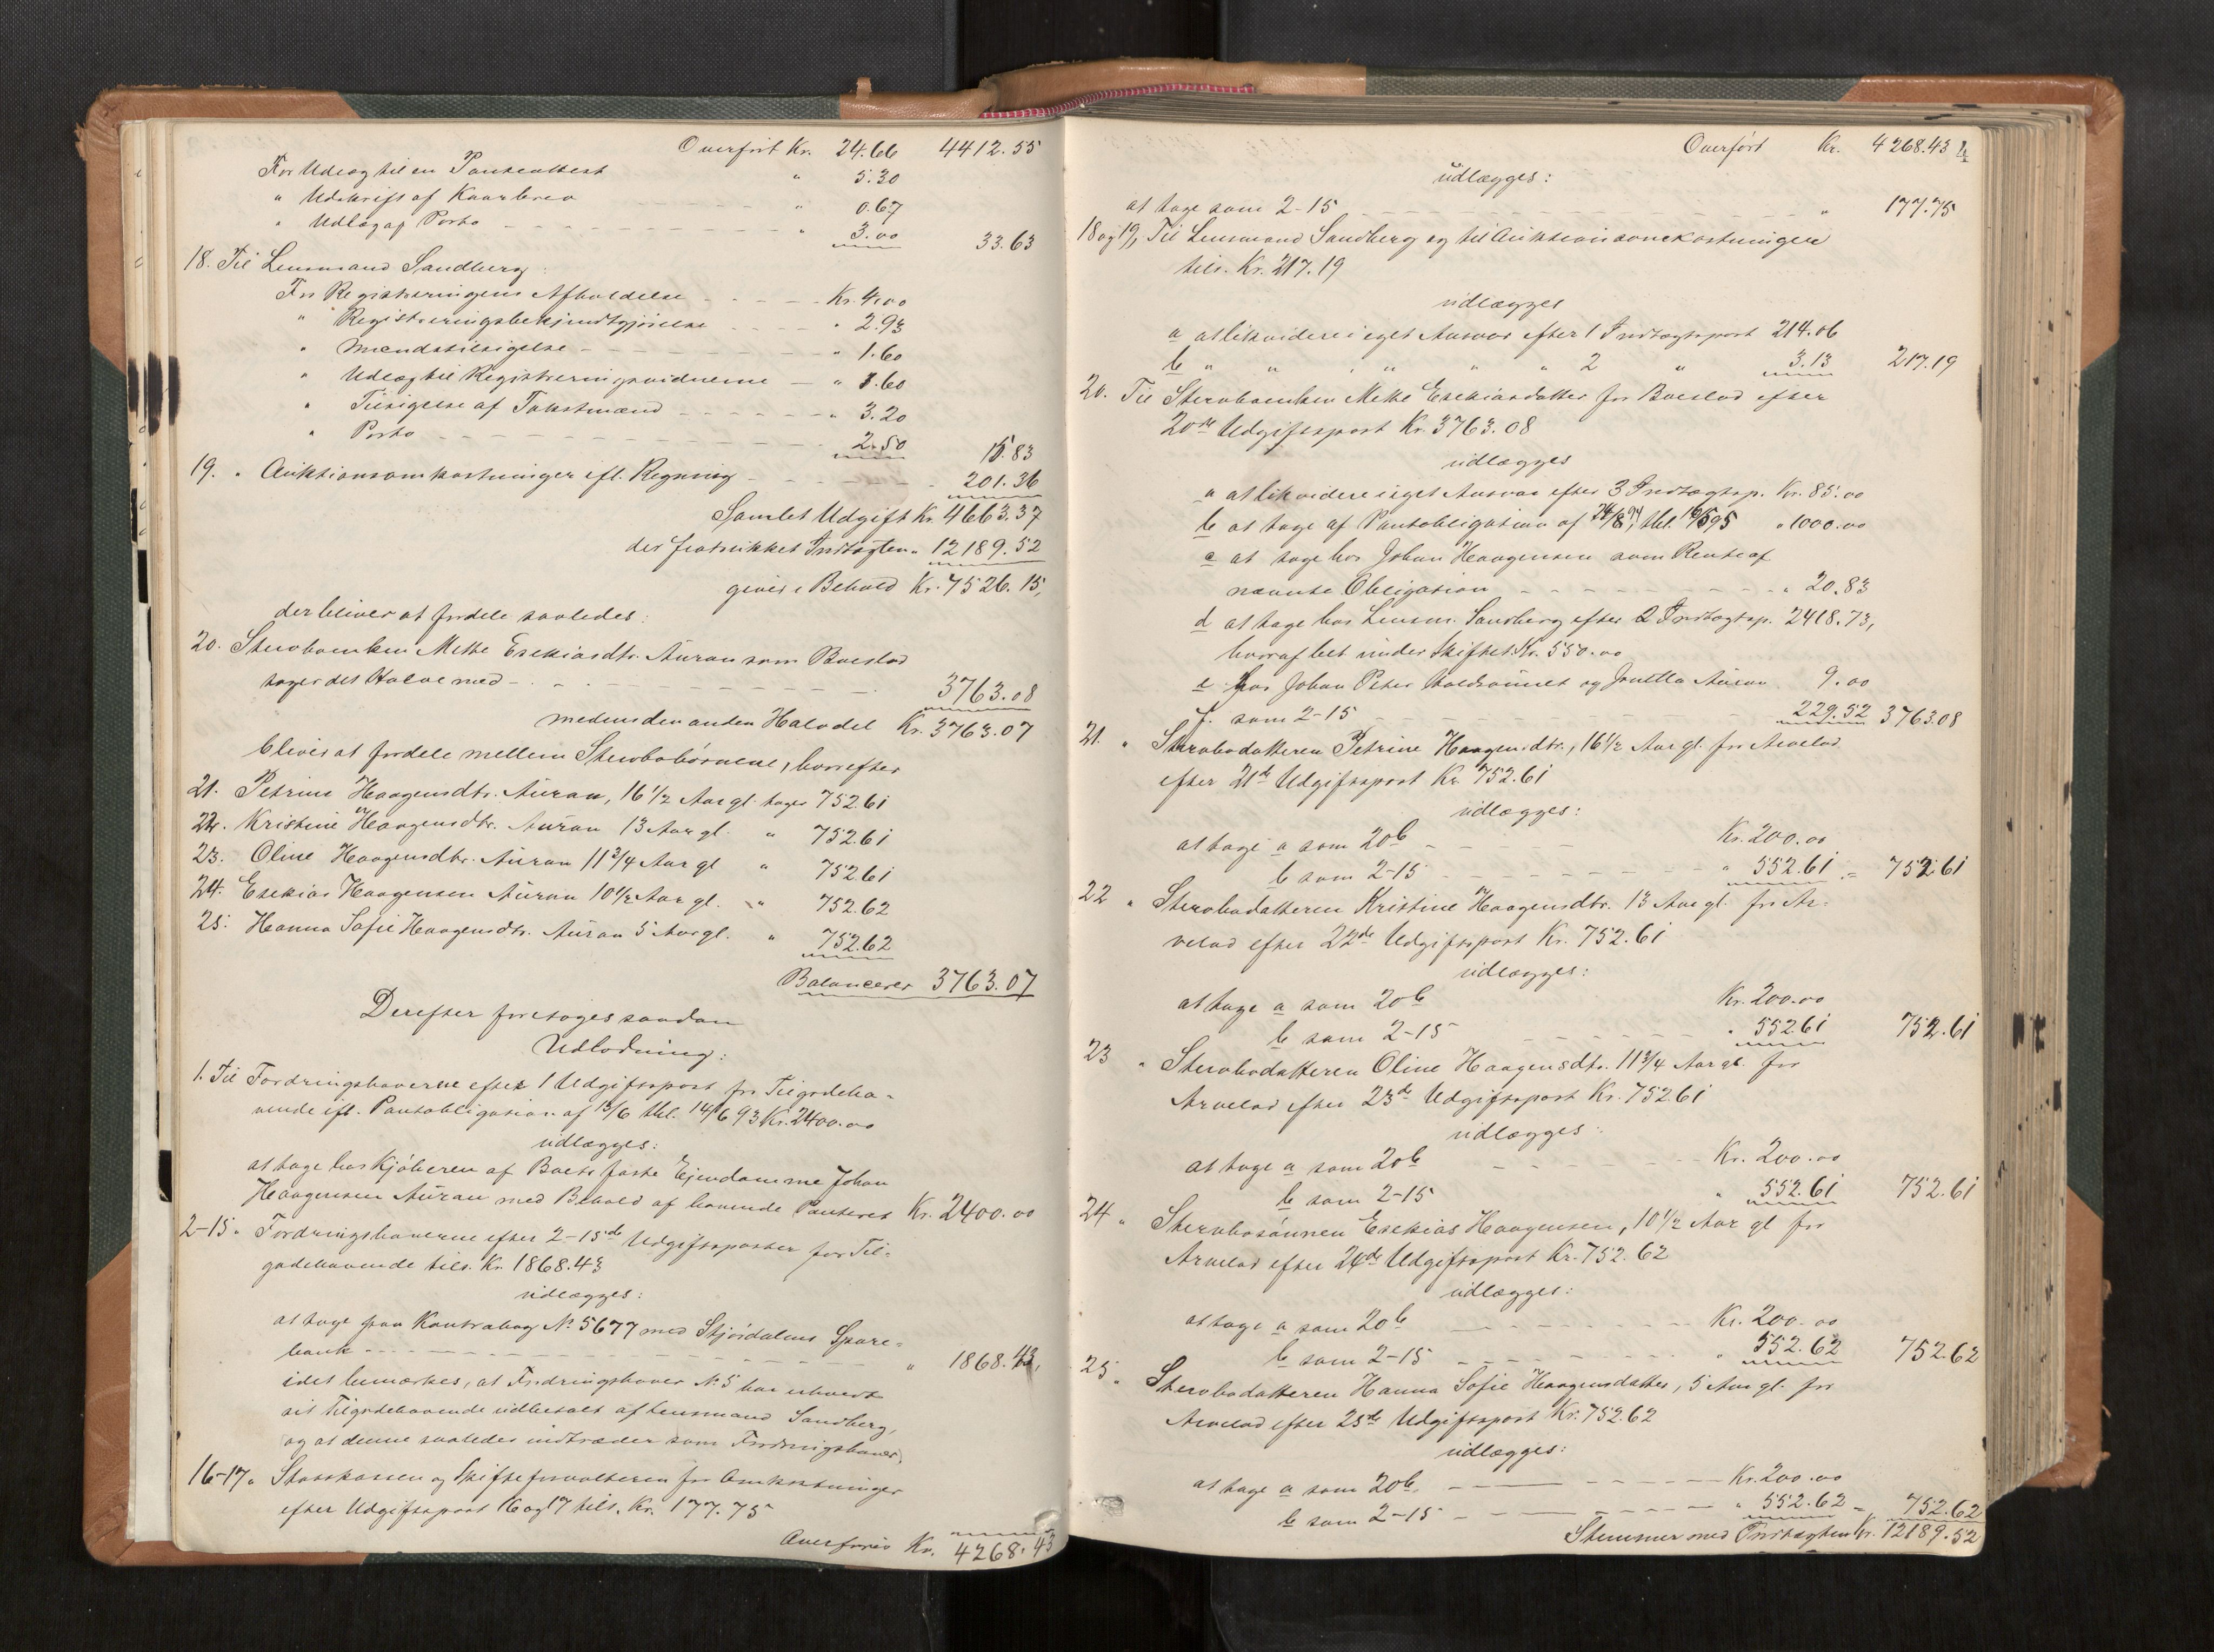 Overført Kr. 24.66 4412.55
For Udlæg til en Panteattest " 5.30
" Udskrift af Kaarbrev " 0.67
" Udlæg af Porto " 3.00 33.63
18. Til Lensmand Sandberg:
For Registreringens Afholdelse Kr. 4.00
" Registreringsbekjendtgjörelse " 2.93
" Mændstilsigelse " 1.60
" Udlæg til Registreringsvidnerne " 1.60
" Tilsigelse af Takstmænd " 3.20
" Porto 2.50 15.83
19. " Auktionsomkostninger ifl. Regning 201.36
Samlet Udgift Kr. 4663.37
der fratrukket Indtægten " 12189.52
giver i Behold Kr. 7526.15,
der bliver at fordele saaledes:
20. Stervboenken Mette Esekiasdtr. Auran som Boeslod
tager det Halve med 3763.08
medens den anden Halvdel Kr. 3763.07
bliver at fordele mellem Stervbobørnene, hvorefter
21. Petrine Haagensdtr. Auran, 16 1/2 Aar gl. tager 752.61
22. Kristine Haagensdtr. Auran 13 Aar gl. " 752.61
23. Oline Haagensdtr. Auran 11 3/4 Aar gl " 752.61
24. Esekias Haagensen Auran 10 1/2 Aar gl. " 752.62
25. Hanna Sofie Haagensdtr. Auran 5 Aar gl. " 752.62
Balancerer 3763.07
Derefter foretoges saadan
Udlodning:
1. Til Fordringshaverne efter 1 Udgiftspost for Tilgodeha-
vende ifl. Panteobligation af 13/6 thl. 14/6 93 Kr. 2400.00
udlægges:
at tage hos Kjøberen af Boets faste Ejendomme Johan
Haagensen Auran med Behold af havende Panteret Kr. 2400.00
2-15 " Fordringshaverne efter 2-15de Udgiftsposter for Til-
godehavende tils. Kr. 1868.43
udlægges:
at tage paa Kontrabog No 5677 med Stjørdalens Spare-
bank " 1868.43,
idet bemærkes, at Fordringshaver No 5 har erholdt
sit Tilgodehavende udbetalt af Lensmand Sandberg,
og at denne saaledes indtræder som Fordringshaver,
16-17 " Statskassen og Skifteforvalteren for Omkostninger
efter Udgiftspost 16 og 17 tils. Kr. 177.75
Overføres Kr. 4268.43
Overført Kr. 4268.43
udlægges:
at tage som 2-15 " 177.75
18 og 19, Til Lensmand Sandberg og til Auktionsomkostninger
tils. Kr. 217.19
udlægges
a at likvidere i eget Ansvar efter 1 Indtægtspost 214.06
b " " " " " 2 " 3.13 217.19
20. Til Stervboenken Mette Esekiasdatter for Boeslod efter
20de Udgiftspost Kr. 3763.08
udlægges
a at likvidere i eget Ansvar efter 3 Indtægtsp. Kr. 85.00
b at tage af Panteobligation af 24/8 94, thl. 16/5 95 " 1000.00
c at tage hos Johan Haagensen som Rente af
nævnte Obligation " 20.83
d at tage hos Lensm. Sandberg efter 2 Indtægtsp. 2418.73,
hvoraf bet. under Skiftet Kr. 550.00
e hos Johan Peter og Auran 9.00
f. som 2-15 229.52 3763.08
21. " Stervbodatteren Petrine Haagensdtr., 16 1/2 Aar gl. for Arvelod
efter 21de Udgiftspost Kr. 752.61
udlægges:
at tage a som 20b Kr. 200.00
b som 2-15 " 552.61 = 752.61
22 " Stervbodatteren Kristine Haagensdtr. 13 Aar gl. for Ar-
velod efter 22de Udgiftspost Kr. 752.61
udlægges:
at tage a som 20b Kr. 200.00
b som 2-15 " 552.61 752.61
23 " Stervbodatteren Oline Haagensdtr. 11 3/4 Aar gl. for
Arvelod efter 23de Udgiftspost Kr. 752.61
udlægges:
at tage a som 20b Kr. 200.00
b som 2-15 " 552.61 752.61
24 " Stervbosönnen Esekias Haagensen, 10 1/2 Aar gl for
Arvelod efter 24de Udgiftspost Kr. 752.62
udlægges:
at tage a som 20b Kr. 200.00
b som 2-15 " 552.62 752.62
25 " Stervbodatteren Hanna Sofie Haagensdatter, 5 Aar gl. for
Arvelod efter 25de Udgiftspost Kr. 752.62
udlægges:
at tage a som 20b. Kr. 200.00
b som 2-15 " 552.62 = 752.62
Stemmer med Indtægten Kr. 12189.52